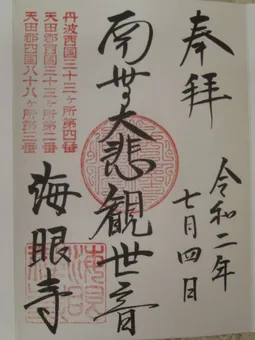 奉拝
令和二年
七月四日
南無大悲觀世音
丹波西国三十三ヶ所第四番
天田郡西国三十三ヶ所第二番
天田郡四国八十八ヶ所第三番
海眼寺